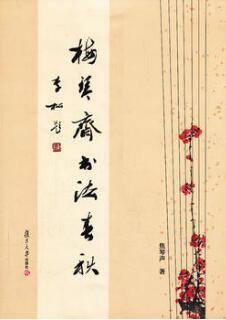 梅琴斋书法春秋
李松题
焦琴声 著
复旦大学出版社